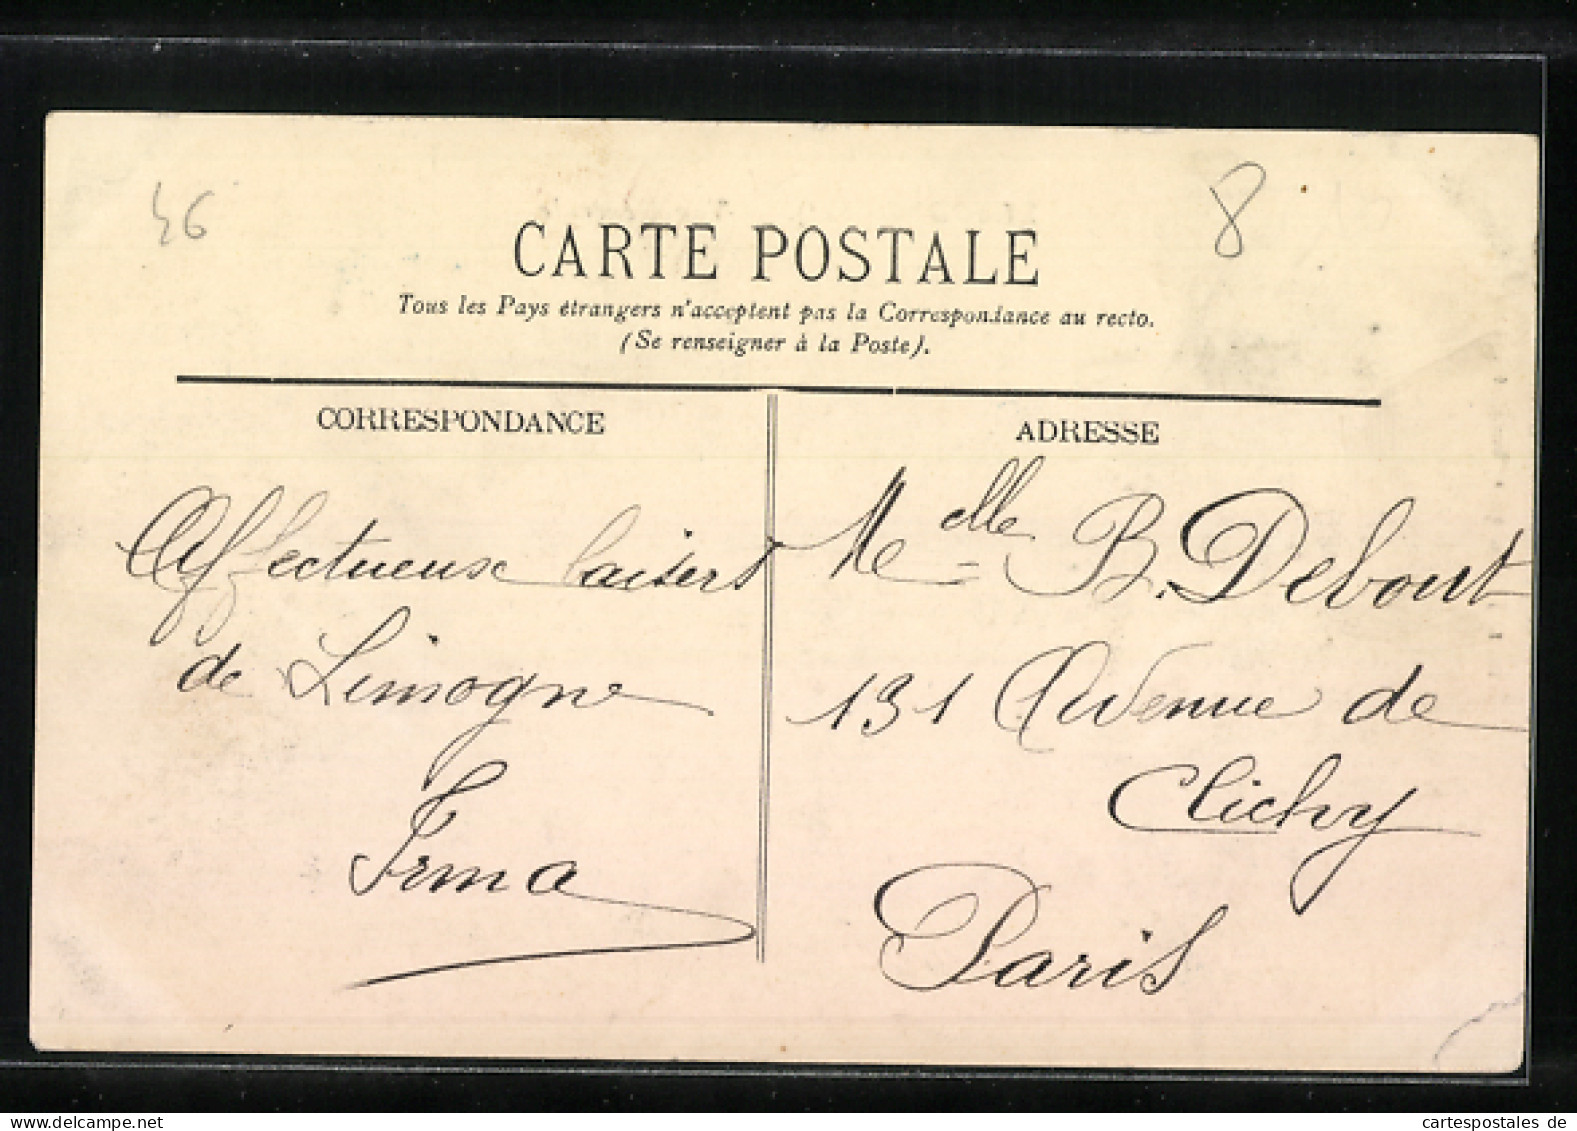 46
8
CARTE POSTALE
Tous les Pays étrangers n'acceptent pas la Correspondance au recto.
(Se renseigner à la Poste).
CORRESPONDANCE
Affectueux baisers
de Limogne
Irma
ADRESSE
Melle B. Debout
131 Avenue de
Clichy
Paris
www.delcampe.net
cartespostales de